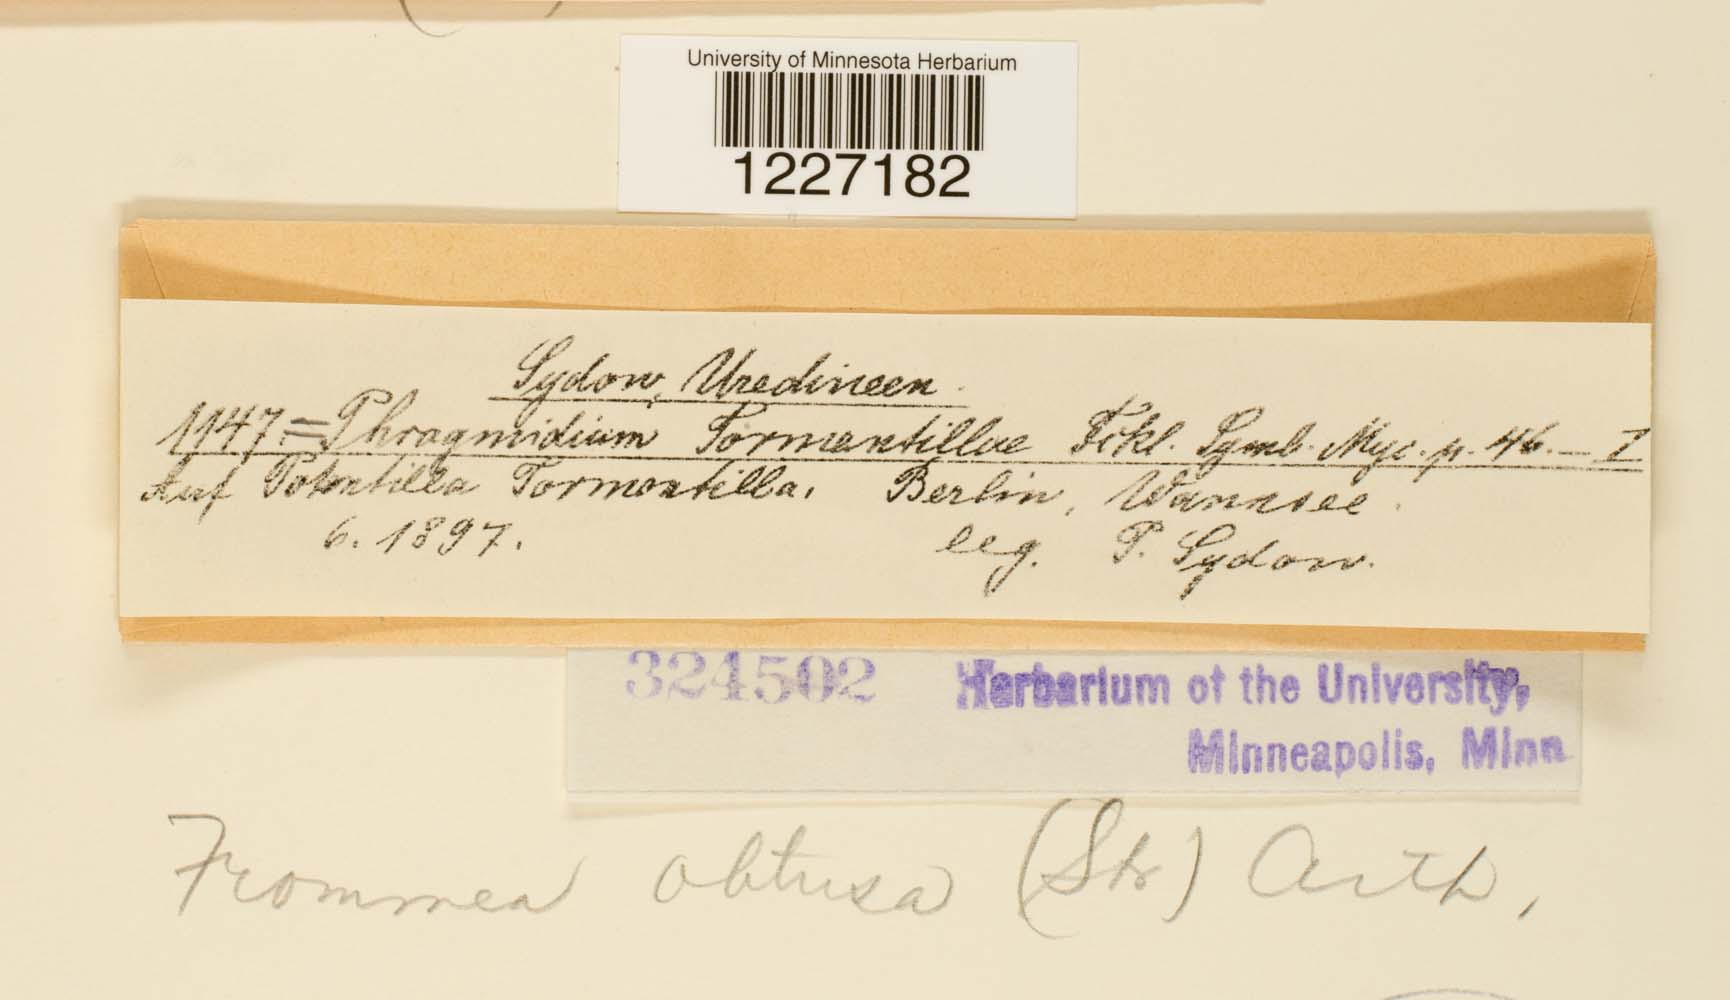 University of Minnesota Herbarium
1227182
Sydow, Uredineen.
1147. = Phragmidium Tormentillae Fckl. Symb. Myc. p. 46. — I
Auf Potentilla Tormentilla. Berlin, Wannsee.
6. 1897. leg. P. Sydow.
324502 Herbarium of the University,
Minneapolis, Minn
Frommea obtusa (Str) Arth.